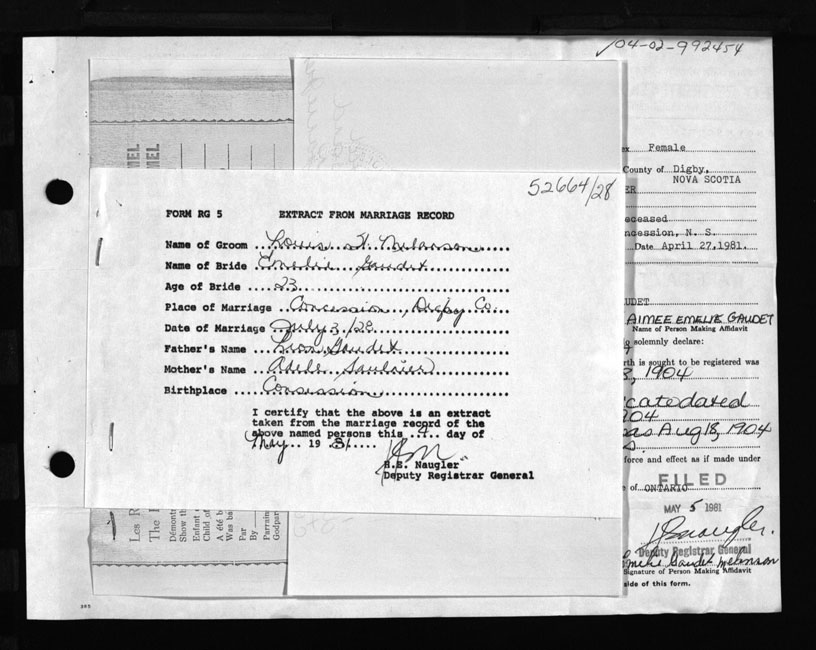 04-02-992454
Female
County of Digby,
NOVA SCOTIA
eceased
ncession, N. S.
Date April 27, 1981.
52664/28
FORM RG 5 EXTRACT FROM MARRIAGE RECORD
Name of Groom Louis H. Melanson
Name of Bride Emelie Gaudet
Age of Bride 23
Place of Marriage Concession, Digby Co.
Date of Marriage July 3/28
Father's Name Leon Gaudet
Mother's Name Adele Saulnier
Birthplace Concession
I certify that the above is an extract
taken from the marriage record of the
above named persons this 4 day of
May 19 81
H.E. Naugler
Deputy Registrar General
UDET
AIMEE EMELIE GAUDET
Name of Person Making Affidavit
solemnly declare:
rth is sought to be registered was
3, 1904
cate dated
904
as Aug 18, 1904
force and effect as if made under
of ONTARIO
FILED
MAY 5 1981
Deputy Registrar General
Emelie Gaudet Melanson
Signature of Person Making Affidavit
side of this form.
Les R
The
Démont
Show th
Enfant
Child of
A été b
Was ba
Par
By
Parrain
Godpar
385